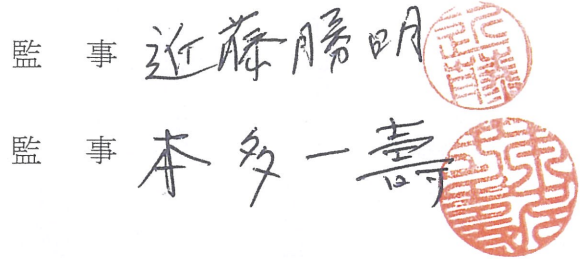 監事 近藤勝明
近藤
監事 本多一壽